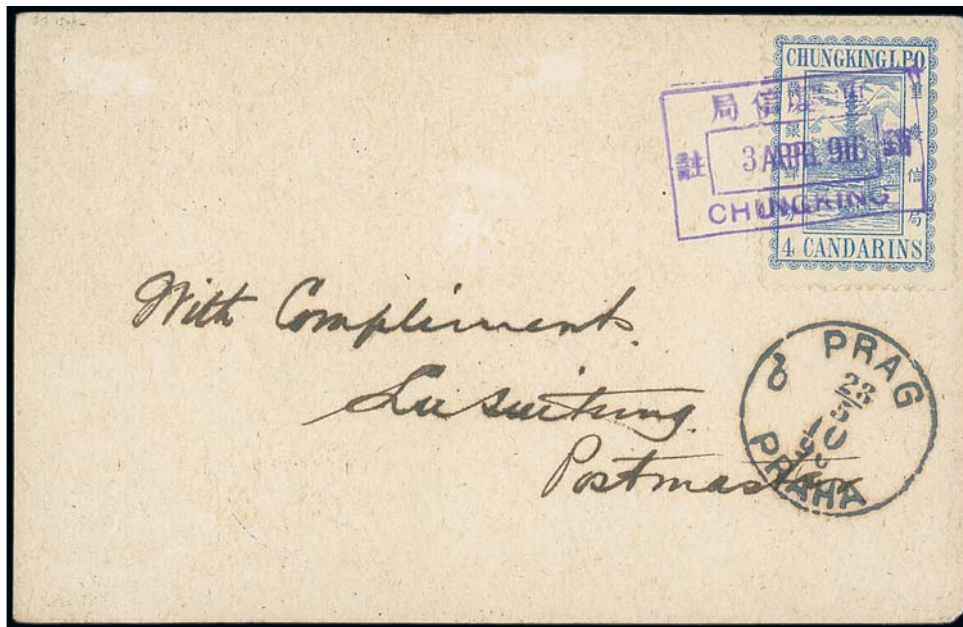 CHUNGKING L.P.O.
重慶信局
4 CANDARINS
重慶信局
註
3 APR 96
CHUNGKING
With Compliment.
Postmaster
PRAG
23
5
PRAHA